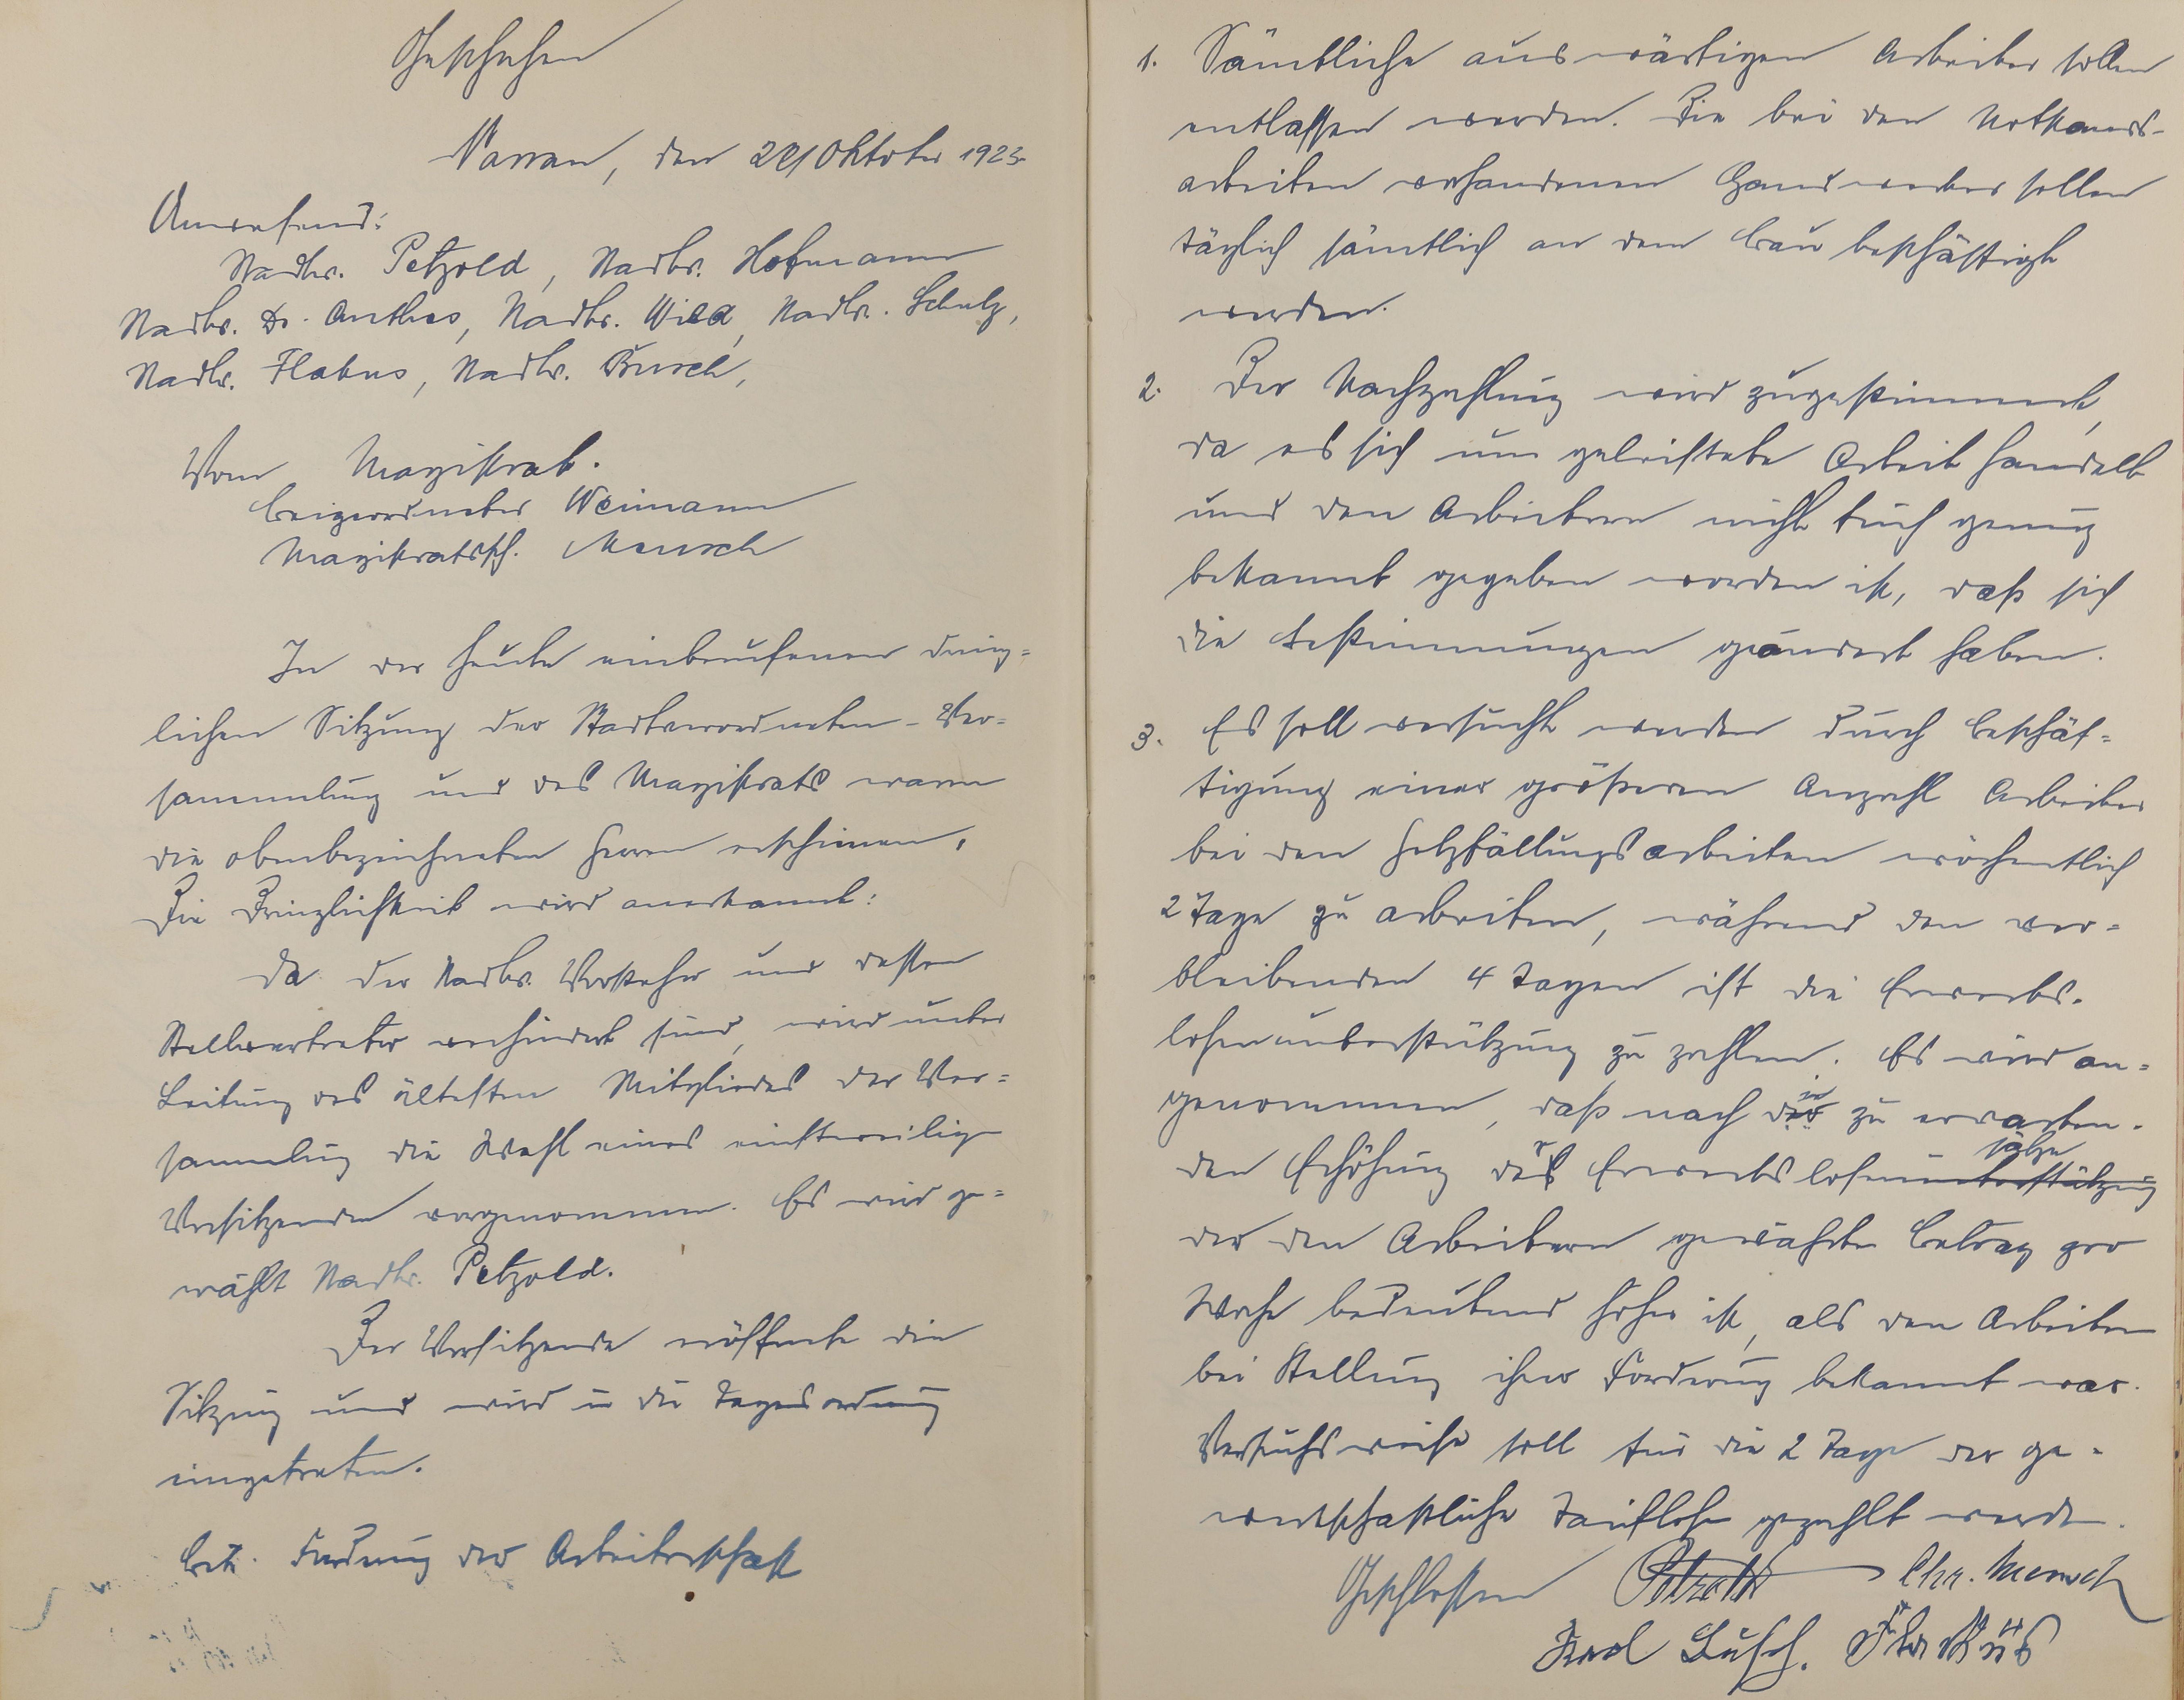 Geschehen
Nassau, den 29 Oktober 1923
Anwesend:
Stadtv. Petzold, Stadtv. Hofmann
Stadtv. Dr. Anthes, Stadtv. Wild, Stadtv. Schulz,
Stadtv. Flakus, Stadtv. Busch,
Vom Magistrat.
Beigeordneter Weimann
Magistratssch. Mensch
In der heute einberufenen dring=
lichen Sitzung der Stadtverordneten-Ver=
sammlung und des Magistrats waren
die obenbezeichneten Herren erschienen.
Die Dringlichkeit wird anerkannt:
Da der Stadtv. Vorsteher und dessen
Stellvertreter verhindert sind, wird unter
Leitung des ältesten Mitgliedes der Ver=
sammlung die Wahl eines einstweiligen
Vorsitzenden vorgenommen. Es wird ge=
wählt Stadtv. Petzold.
Der Vorsitzende eröffnete die
Sitzung und wird in die Tagesordnung
eingetreten.
Betr. Forderung der Arbeiterschaft
1. Sämtliche auswärtigen Arbeiter sollen
entlassen werden. Die bei den Notstands-
arbeiten vorhandenen Handwerker sollen
täglich sämtlich an dem Bau beschäftigt
werden.
2. Der Nachzahlung wird zugestimmt,
da es sich um geleistete Arbeit handelt
und den Arbeitern nicht früh genug
bekannt gegeben worden ist, daß sich
die Bestimmungen geändert haben.
3. Es soll versucht werden durch Beschäf=
tigung einer größeren Anzahl Arbeiter
bei den Holzfällungsarbeiten wöchentlich
2 Tage zu arbeiten, während den ver=
bleibenden 4 Tagen ist die Erwerbs-
losenunterstützung zu zahlen. Es wird an=
genommen, daß nach der zu erwarten-
den Erhöhung der Erwerbslosensätze
der den Arbeitern gewährte Betrag pro
Woche bedeutend höher ist, als den Arbeitern
bei Stellung ihrer Forderung bekannt war.
Versuchsweise soll für die 2 Tage der ge-
werkschaftliche Tariflohn gezahlt werden.
Geschlossen Petzold Chr. Mensch
Karl Busch. Flakus